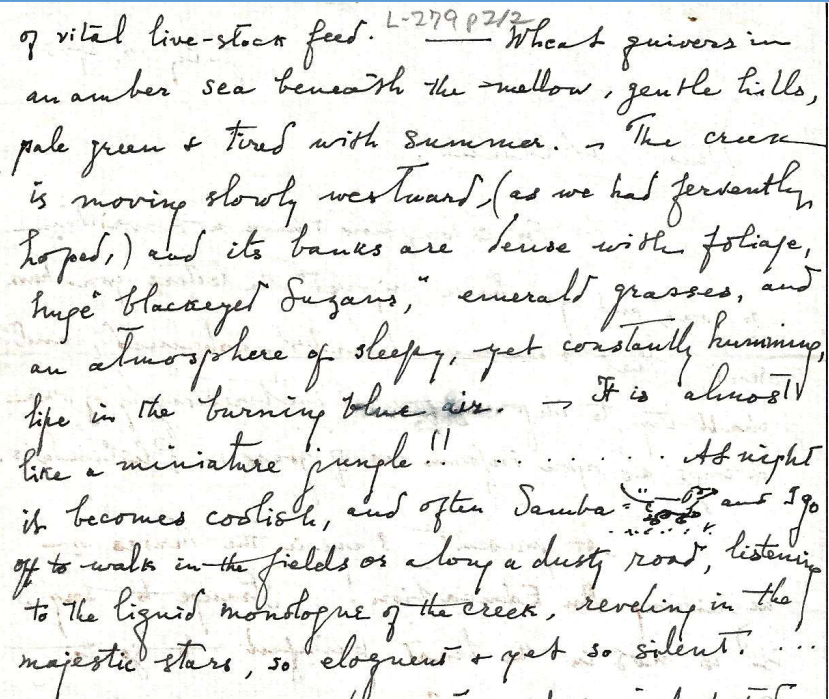 L-279 p 2/2
of vital live-stock feed. —— Wheat quivers in
an amber sea beneath the mellow, gentle hills,
pale green & tired with summer. – The creek
is moving slowly westward, (as we had fervently
hoped,) and its banks are dense with foliage,
huge "blackeyed Suzans," emerald grasses, and
an atmosphere of sleepy, yet constantly humming,
life in the burning blue air. – It is almost
like a miniature jungle!! . . . . . . . At night
it becomes coolish, and often Samba and I go
off to walk in the fields or along a dusty road, listening
to the liquid monologue of the creek, reveling in the
majestic stars, so eloquent & yet so silent. ...